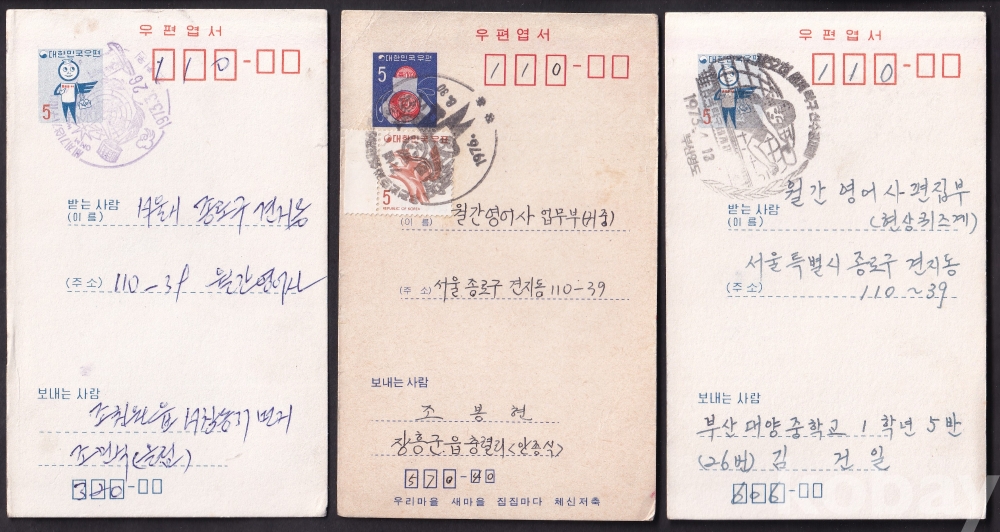 우편엽서
대한민국우편
5
110-
받는 사람
(이 름)
서울시 종로구 견지동
(주 소)
110-39 월간영어사
보내는 사람
320-
우편엽서
대한민국우편
5
110-
대한민국우표
5
REPUBLIC OF KOREA
1976.
8.30
(이 름)
월간영어사 업무부
(주 소)
서울 종로구 견지동 110-39
보내는 사람
조 봉 현
장흥군.읍 충렬리<안종식>
570-40
우리마을 새마을 집집마다 체신저축
우편엽서
5
110-
1975.
받는 사람
(이 름)
월간 영어사 편집부
(현상퀴즈계)
서울 특별시 종로구 견지동
(주 소)
110~39
보내는 사람
부산 대양 중학교 1 학년 5반
(26번) 김 건 일
606-